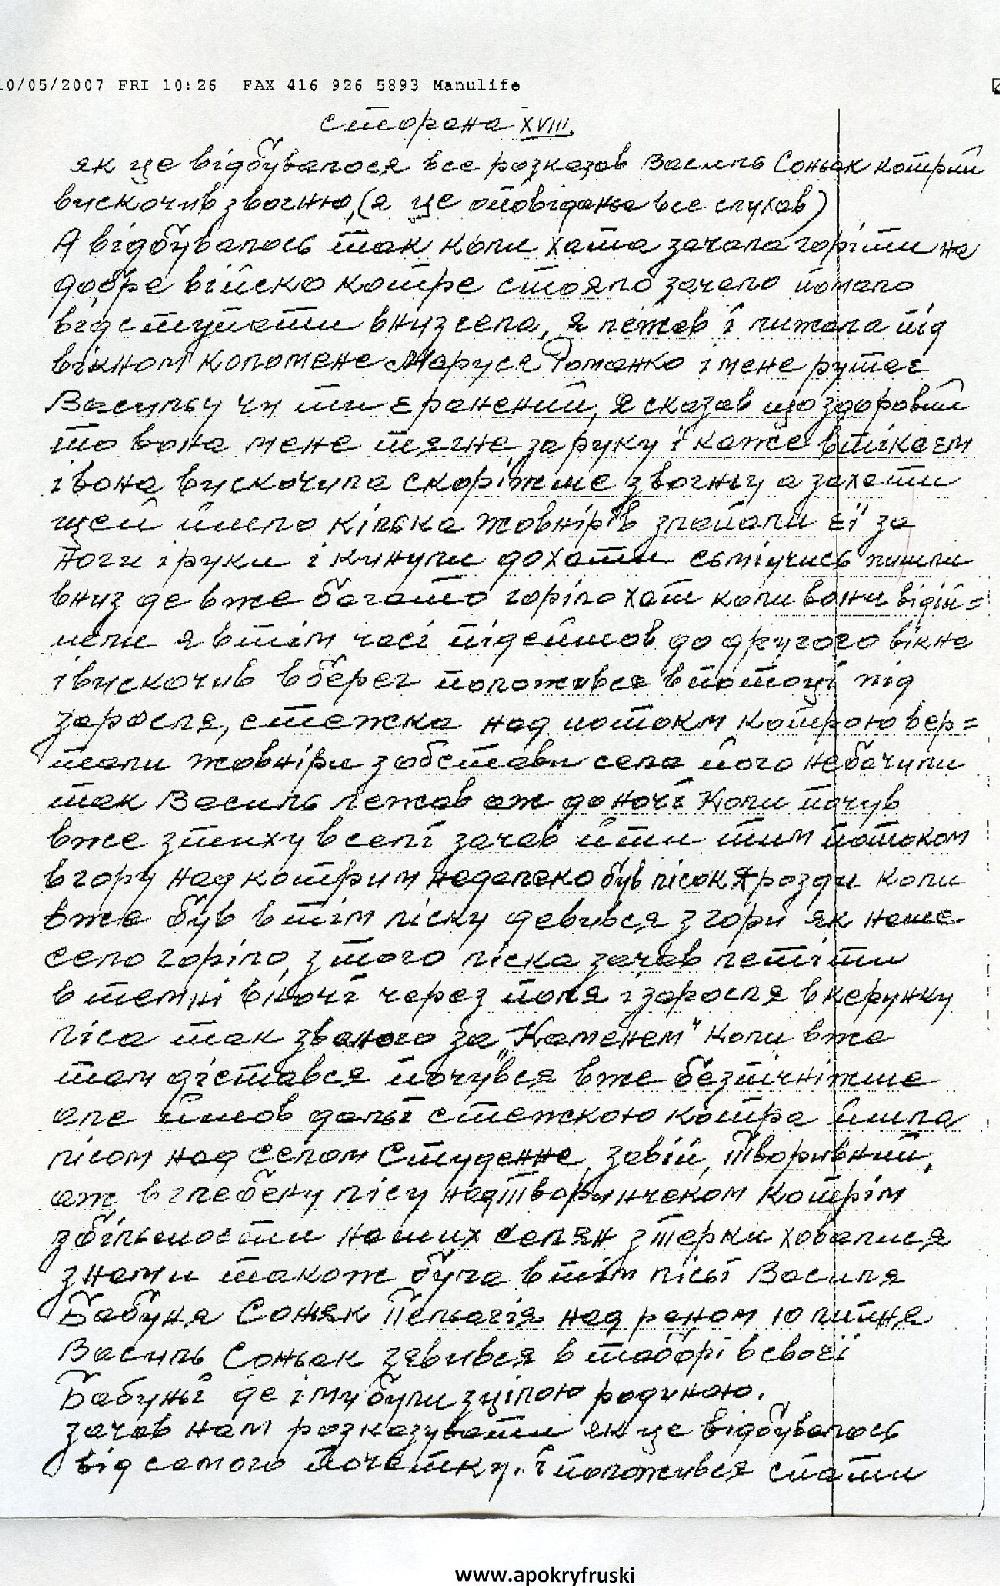 10/05/2007 FRI 10:26 FAX 416 926 5893 Manulife
сторана XVIII.
як це відбувалося все розказав Василь Соньак котрий
вискочив звогню, (я це оповіданьє все слухав)
А відбувалось так коли хата зачала горіти на
добре війско котре стояло зачело помало
відступати вниз села, я лежав і лижала під
вікном коломене Маруся Романко і мене рутає
Васильу чи ти є ранений, Я сказав що здоровий
то вона мене тягне за руку і каже втікаєм
і вона вискочила скоріжше звогньу а захати
щей йшло кілька жовнірів злапали єї за
ноги і руки і кинули дохати сьміучись пишли
вниз де вже багато горіло хат коли вони відій=
шли я втім часі підейшов до другого вікна
івискочив вберег положився впотоці під
заросля, стежка над потокм котрою вер=
тали жовніри зобстави села його небачили
так Василь лежав аж до ночі Коли почув
вже зтиху вселі зачав йти тим потоком
вгору над котрим недалеко був лісок Ярозди коли
вже був втім ліску девився згори як наше
село горіло, зтого ліска зачав летіти
в темні вночі через поля ізаросля вкерунку
ліса так званого за „Каменем" Коли вже
там дістався почувся вже безпічніжше
але йшов дальі стежкою котра йшла
лісом над селом Студенне, завій, Творивний,
аж вглебену лісу надтворинчеком Котрім
збільшости наших селян зтерки ховалися
знами також була втім лісьі Василя
Бабуня Соняк Пельагія над раном 10 липня
Василь Соньак зявився в таборі всвоєї
Бабуньі де і ми були зцілою родиною.
зачав нам розказувати як це відбувалось
від самого початку. І положився спати
www.apokryfruski